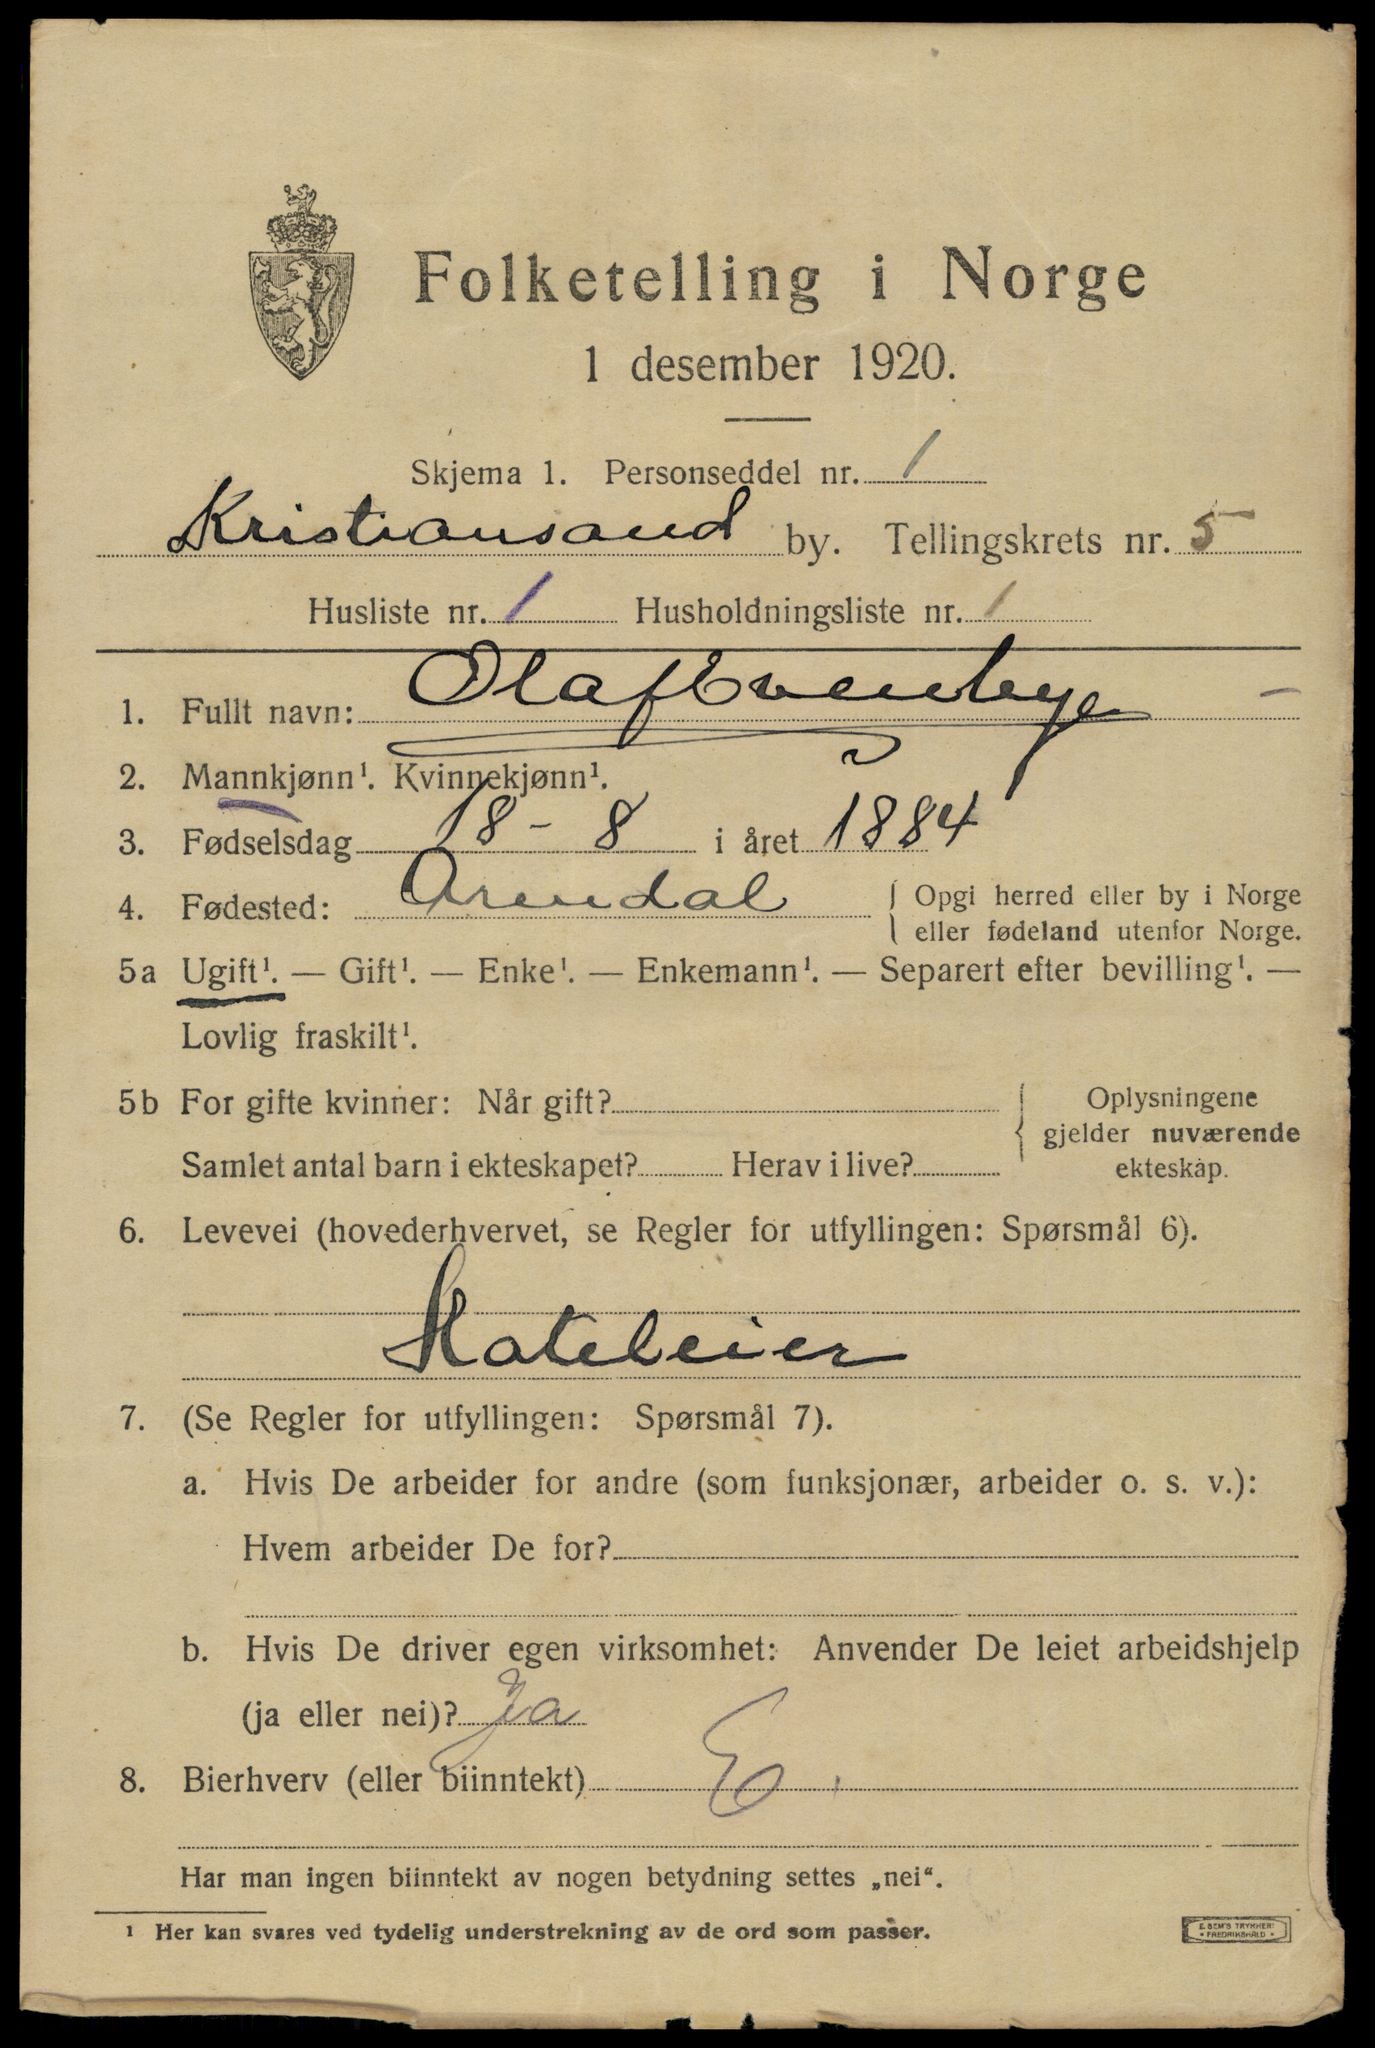 Folketelling i Norge
1 desember 1920.
Skjema 1. Personseddel nr. 1
Kristiansand by. Tellingskrets nr. 5
Husliste nr. 1 Husholdningsliste nr. 1
1. Fullt navn: Olaf
2. Mannkjønn¹. Kvinnekjønn¹.
3. Fødselsdag 18 - 8 i året 1884
4. Fødested: Arendal { Opgi herred eller by i Norge
eller fødeland utenfor Norge.
5a Ugift¹. — Gift¹. — Enke¹. — Enkemann¹. — Separert efter bevilling¹. —
Lovlig fraskilt¹.
5b For gifte kvinner: Når gift?
Samlet antal barn i ekteskapet? Herav i live?
{ Oplysningene
gjelder nuværende
ekteskap.
6. Levevei (hovederhvervet, se Regler for utfyllingen: Spørsmål 6).
Hoteleier
7. (Se Regler for utfyllingen: Spørsmål 7).
a. Hvis De arbeider for andre (som funksjonær, arbeider o. s. v.):
Hvem arbeider De for?
b. Hvis De driver egen virksomhet: Anvender De leiet arbeidshjelp
(ja eller nei)? Ja
8. Bierhverv (eller biinntekt) E.
Har man ingen biinntekt av nogen betydning settes „nei“.
¹ Her kan svares ved tydelig understrekning av de ord som passer.
E. SEM'S TRYKKERI
• FREDRIKSHALD •